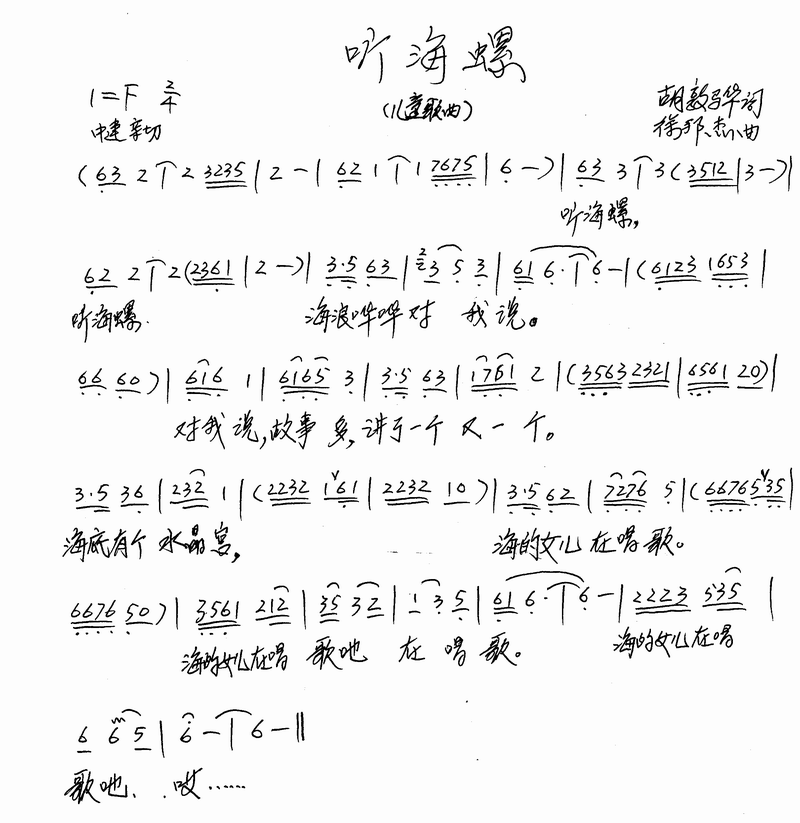 听海螺
(儿童歌曲)
1=F 2/4
中速 亲切
胡敦华词
曲
(63 2 | 2 3235 | 2 - | 62 1 | 1 7675 | 6 -) | 63 3 | 3 (3512 | 3 -) |
听海螺,
62 2 | 2 (2361 | 2 -) | 3·5 63 | 2 3 5 3 | 61 6· | 6 - | (6123 1653 |
听海螺. 海浪哗哗对 我 说。
66 60) | 616 1 | 6165 3 | 3·5 63 | 1761 2 | (3563 2321 | 6561 20) |
对我说,故事多,讲了一个又一个。
3·5 36 | 232 1 | (2232 161 | 2232 10) | 3·5 62 | 7276 5 | (66765 35 |
海底有个 水晶宫, 海的女儿 在唱歌。
6676 50) | 3561 212 | 35 32 | 1 3 5 | 61 6· | 6 - | 2223 535 |
海的女儿在唱 歌吔 在 唱 歌。 海的女儿在唱
6 6 5 | 6 - | 6 - ||
歌吔、 哎……